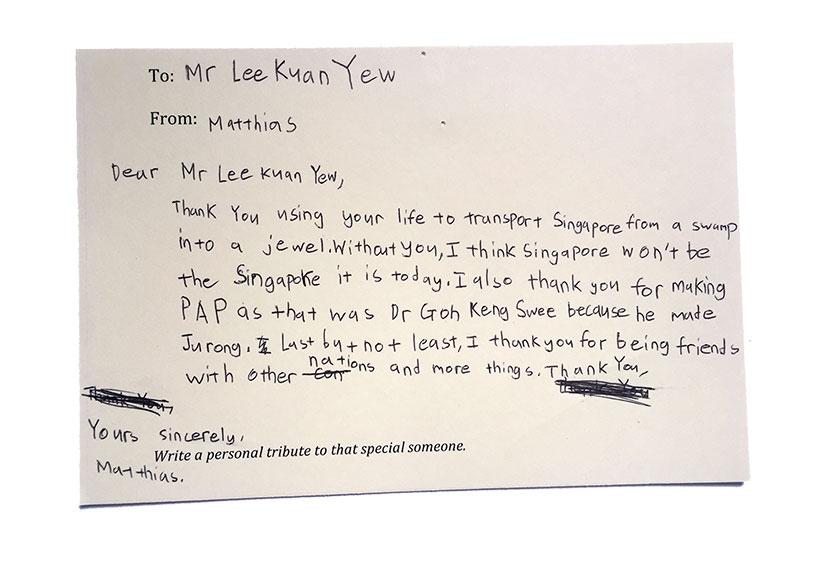 To: Mr Lee Kuan Yew
From: Matthias
Dear Mr Lee Kuan Yew,
Thank You using your life to transport Singapore from a swamp
into a jewel. Without you, I think Singapore won't be
the Singapore it is today. I also thank you for making
PAP as that was Dr Goh Keng Swee because he made
Jurong. Last but not least, I thank you for being friends
with other nations and more things. Thank You,
Thank You,
Yours sincerely,
Write a personal tribute to that special someone.
Matthias.